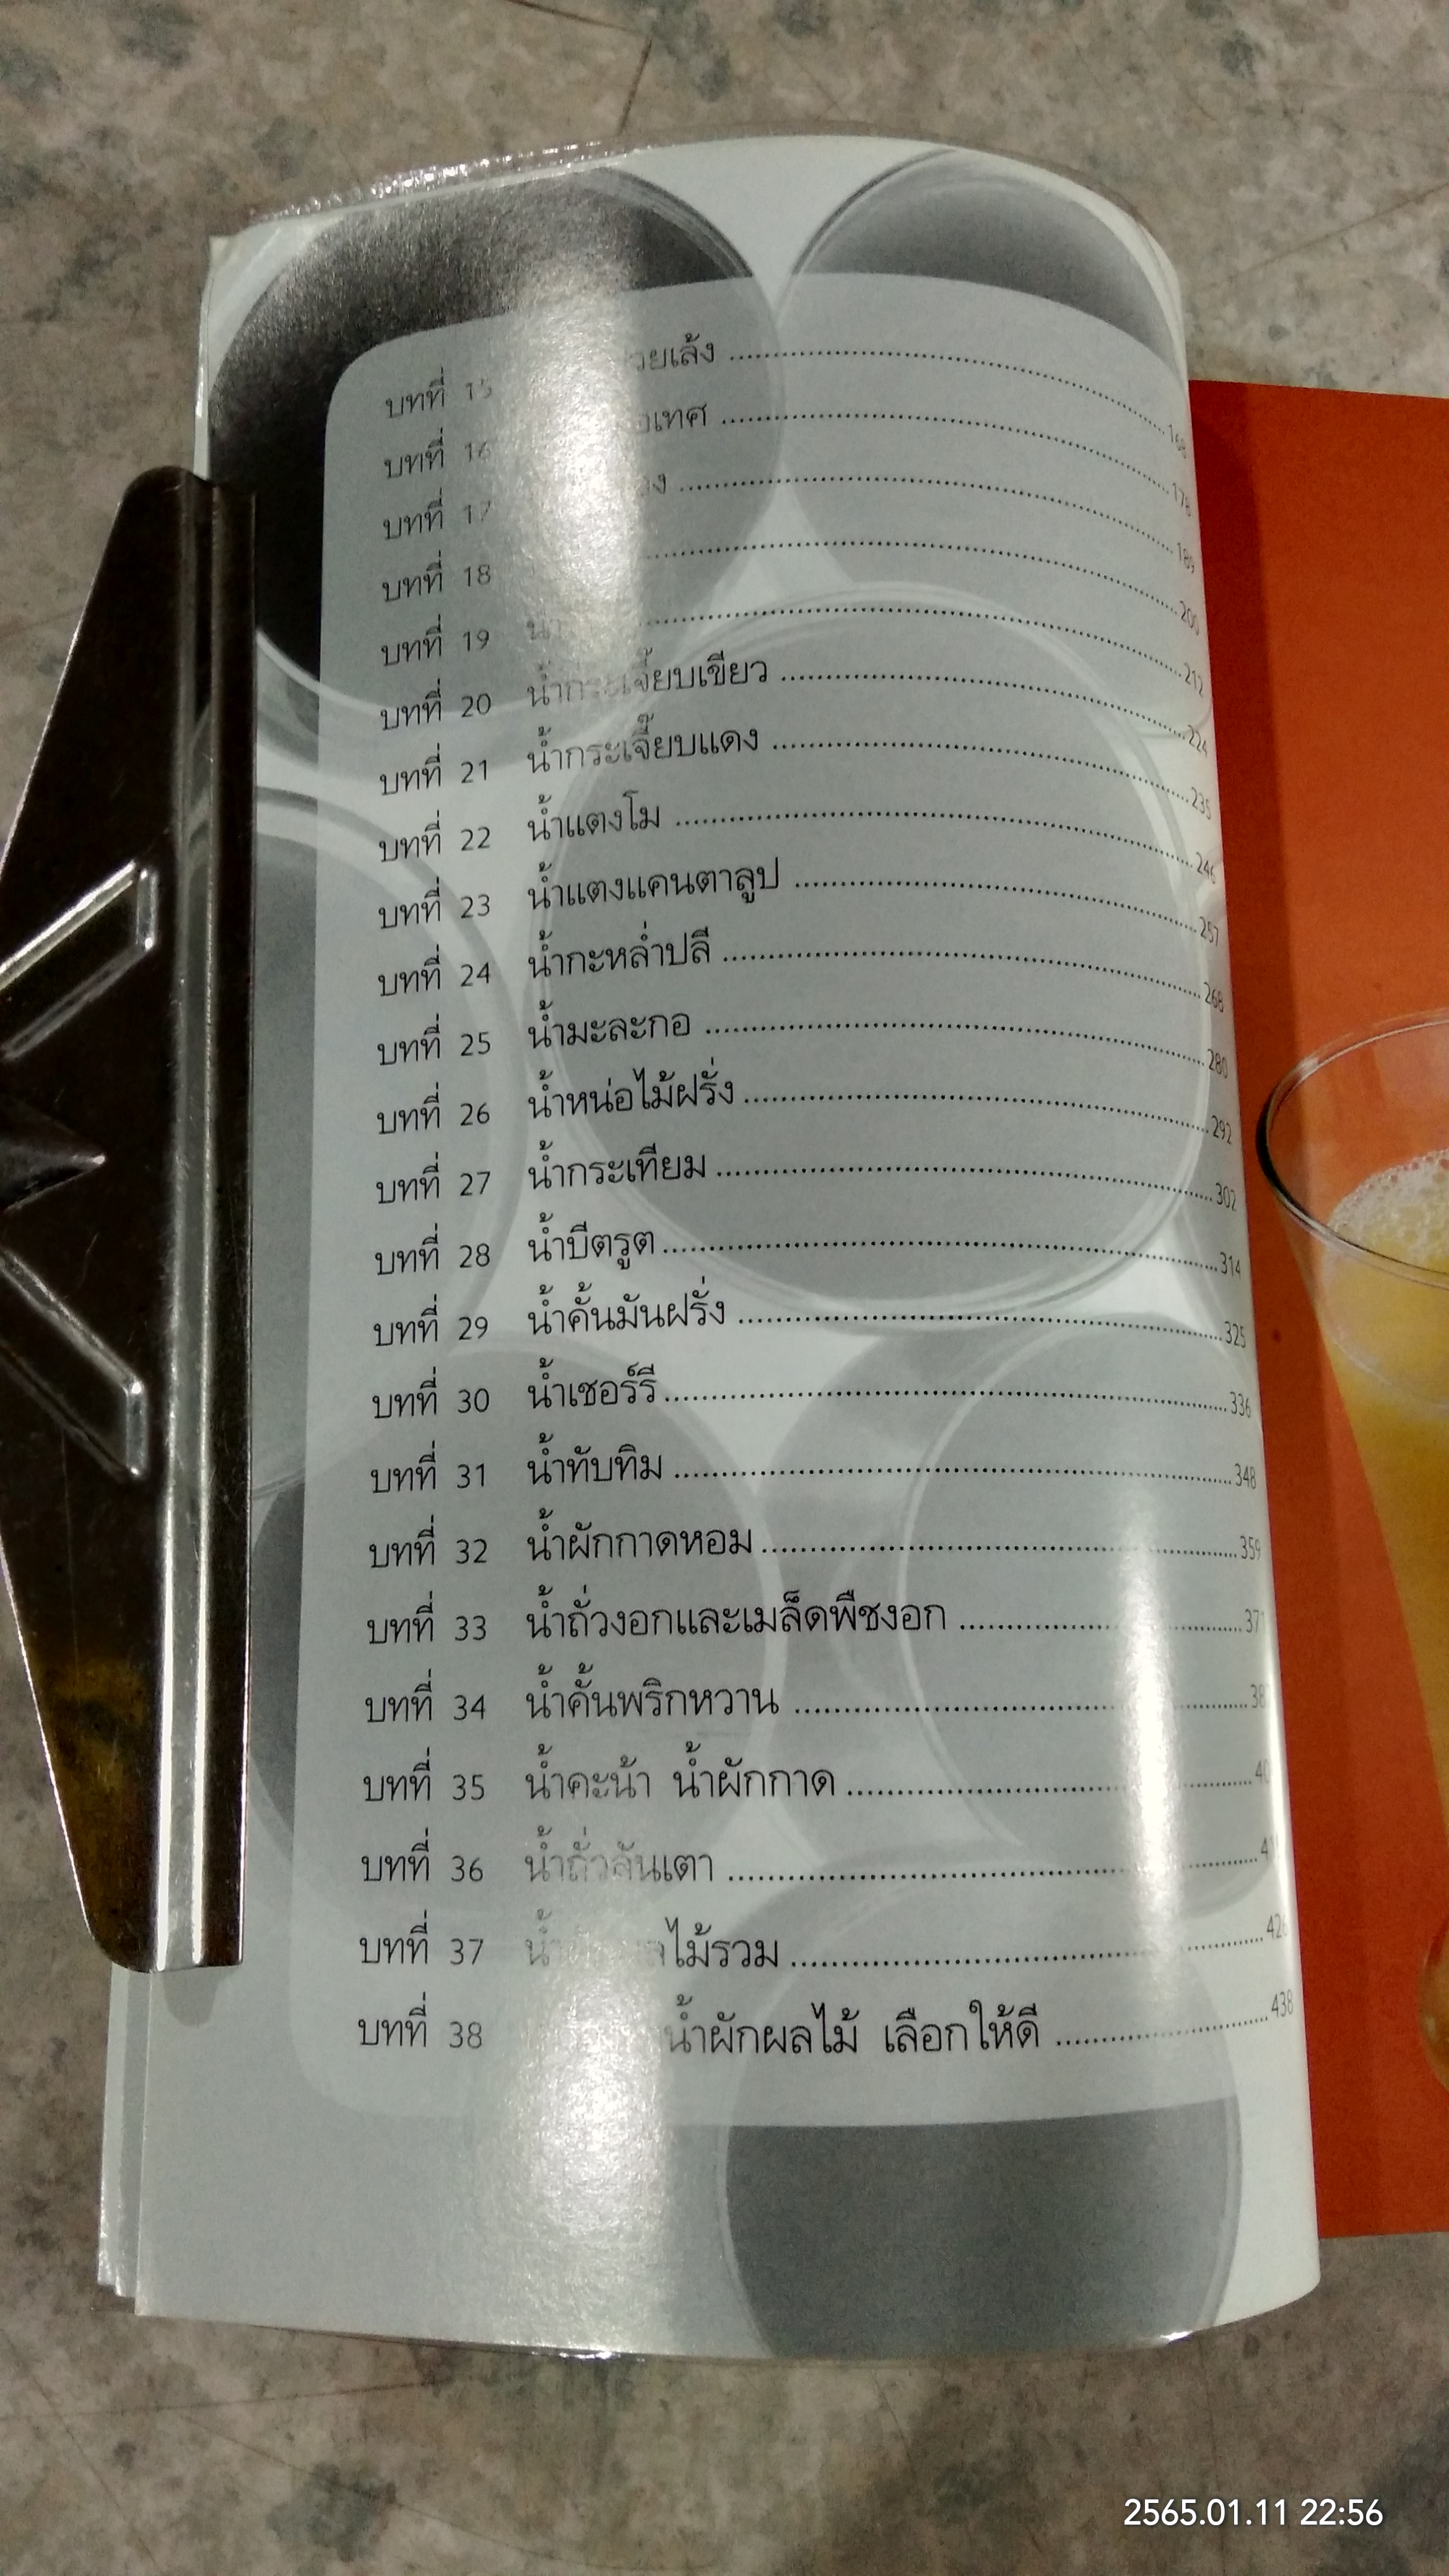 บทที่ 15 ........ 168
บทที่ 16 ........ 178
บทที่ 17 ........ 189
บทที่ 18 ........ 200
บทที่ 19 ........ 212
บทที่ 20 น้ำกระเจี๊ยบเขียว ........ 224
บทที่ 21 น้ำกระเจี๊ยบแดง ........ 235
บทที่ 22 น้ำแตงโม ........ 246
บทที่ 23 น้ำแตงแคนตาลูป ........ 257
บทที่ 24 น้ำกะหล่ำปลี ........ 268
บทที่ 25 น้ำมะละกอ ........ 280
บทที่ 26 น้ำหน่อไม้ฝรั่ง ........ 292
บทที่ 27 น้ำกระเทียม ........ 302
บทที่ 28 น้ำบีตรูต ........ 314
บทที่ 29 น้ำคั้นมันฝรั่ง ........ 325
บทที่ 30 น้ำเชอร์รี ........ 336
บทที่ 31 น้ำทับทิม ........ 348
บทที่ 32 น้ำผักกาดหอม ........ 359
บทที่ 33 น้ำถั่วงอกและเมล็ดพืชงอก ........
บทที่ 34 น้ำคั้นพริกหวาน ........
บทที่ 35 น้ำคะน้า น้ำผักกาด ........
บทที่ 36 น้ำถั่วลันเตา ........
บทที่ 37 ไม้รวม ........
บทที่ 38 น้ำผักผลไม้ เลือกให้ดี ........ 438
2565.01.11 22:56